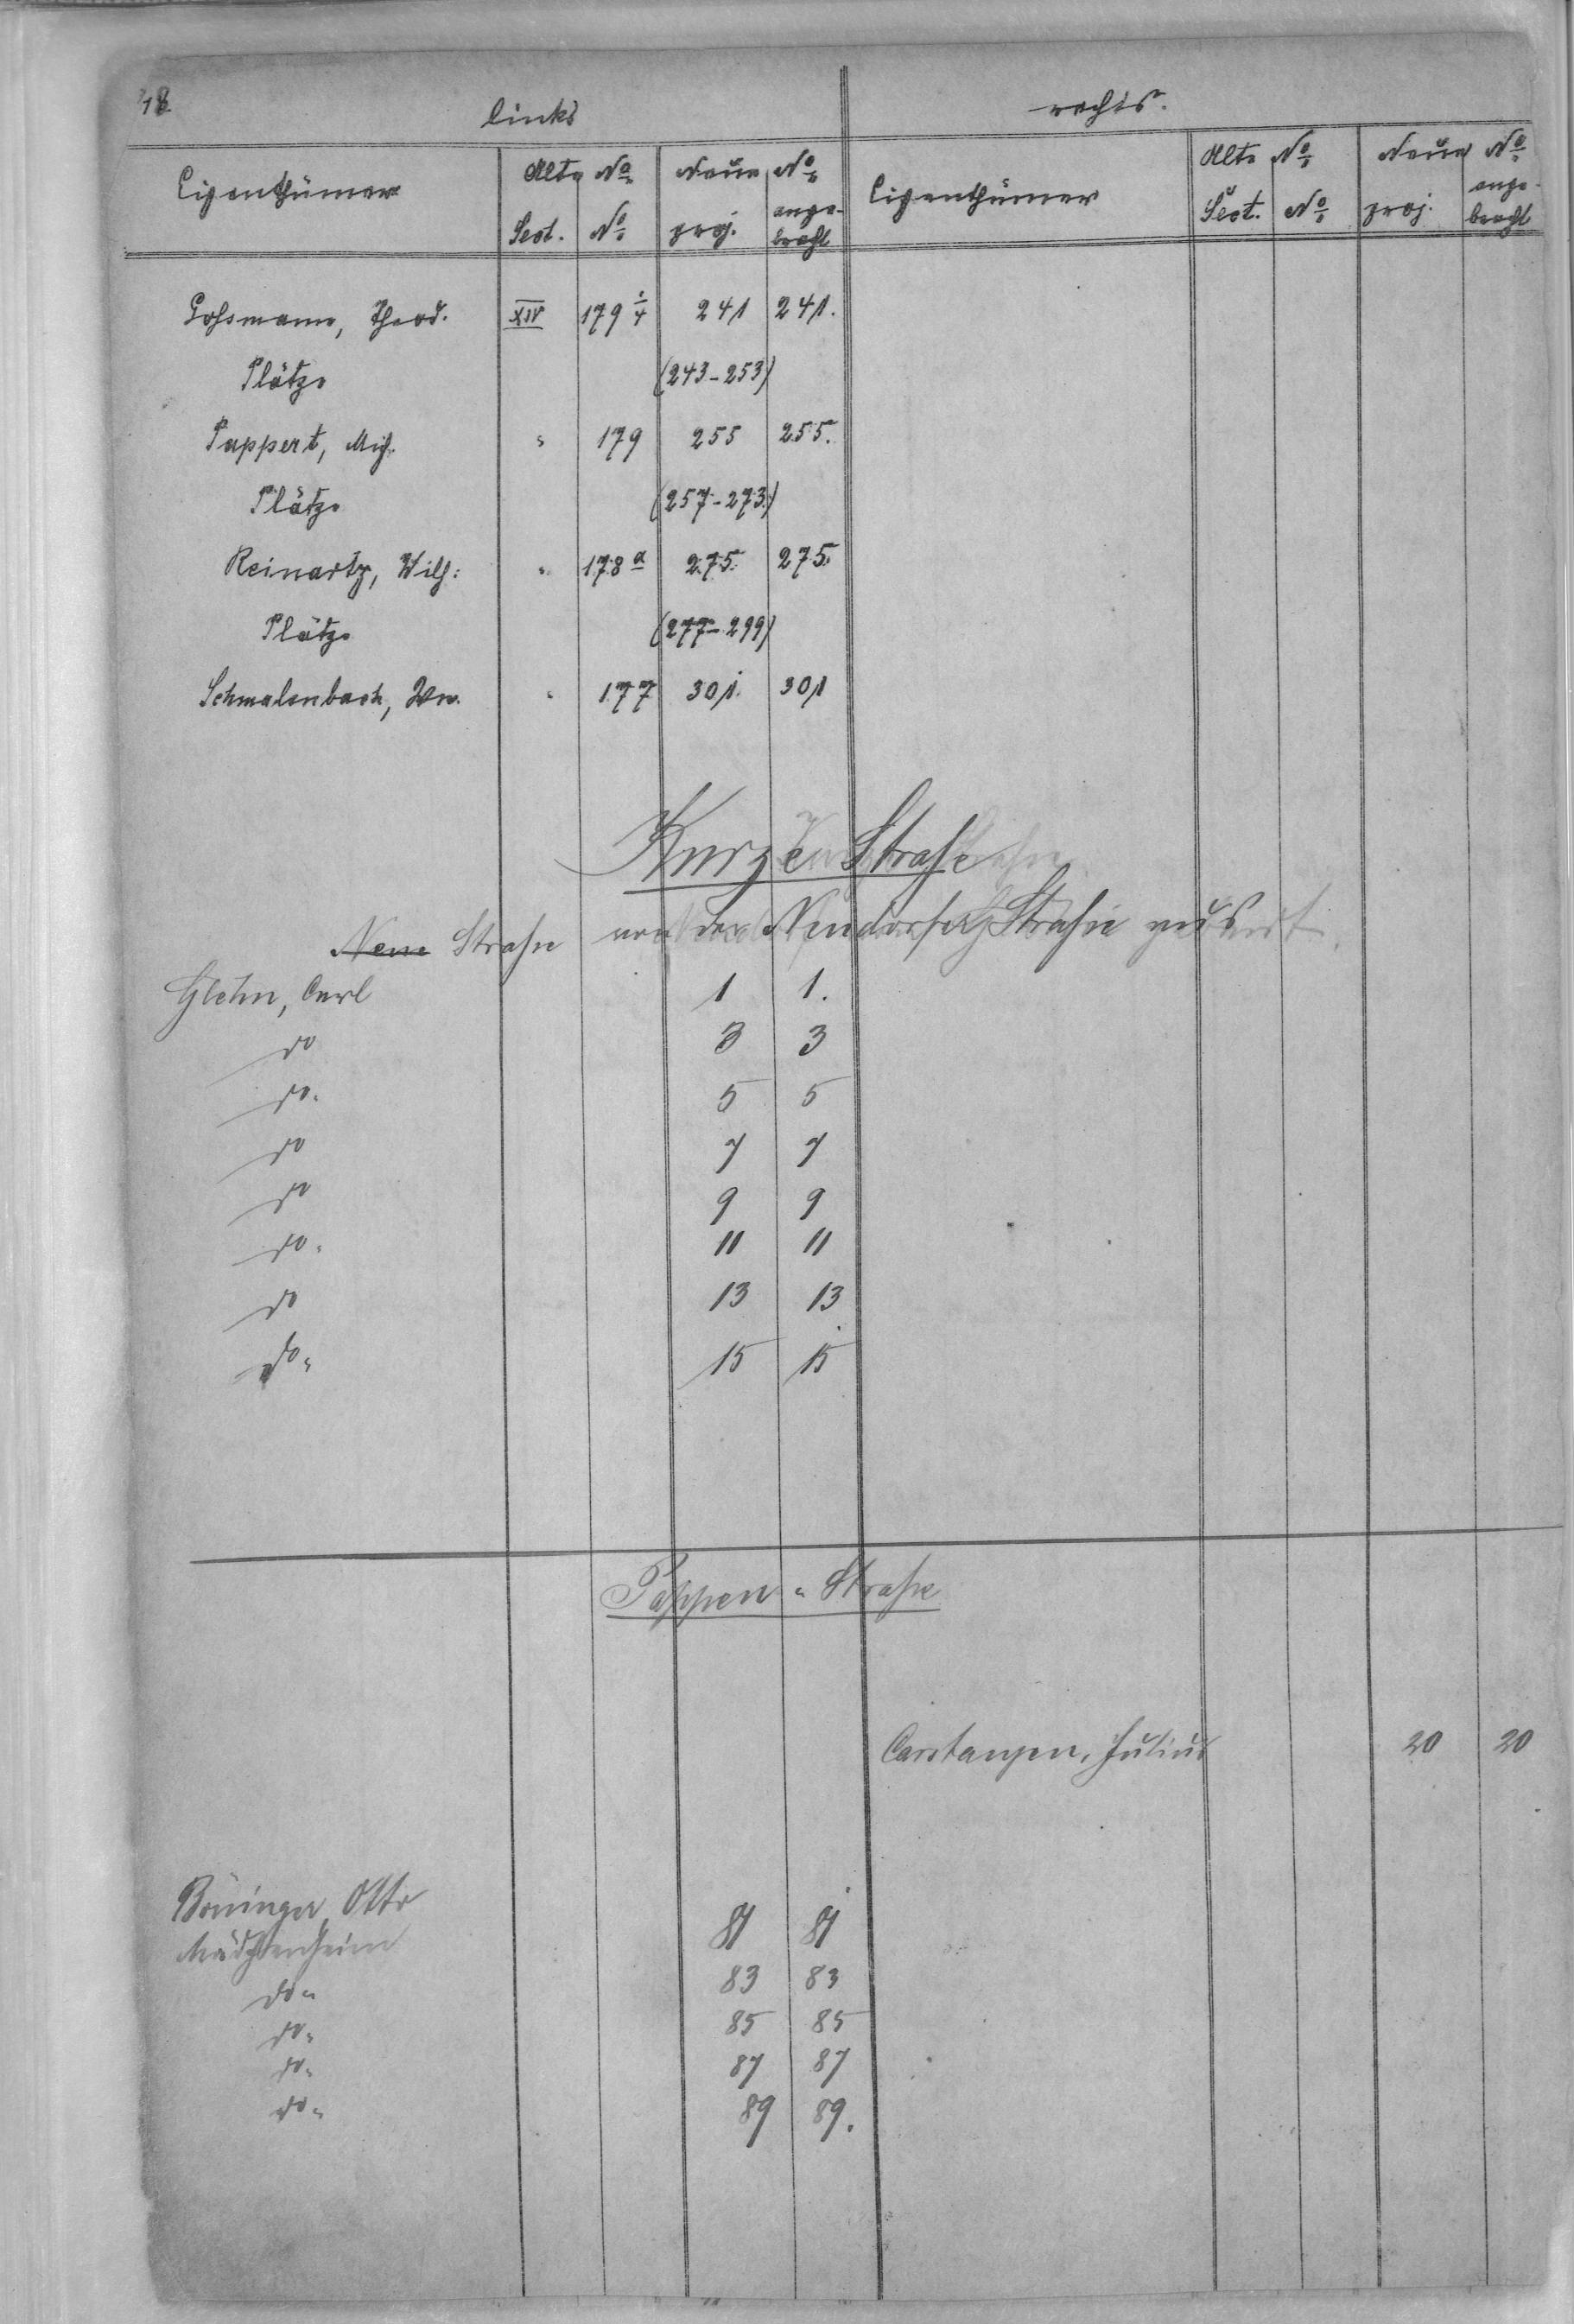 18
links
rechts.
Eigenthümer Alte No. Neue No. Eigenthümer Alte No. Neue No.
Sect. No. proj. ange-bracht Sect. No. proj. ange-bracht
Gossmann, Theod. XIV 179 1/4 241 241.
Plätze (243-253)
Pappert, Mich. " 179 255 255.
Plätze (257-273.)
Reinartz, Wilh: " 178a 275. 275.
Plätze (277-299)
Schmalenbach, Ww. " 177 301. 301
Kurze Straße
Neue Straße von der Neudorfer Straße
Glehn, Carl 1 1.
do 3 3
do. 5 5
do 7 7
do 9 9
do. 11 11
do 13 13
do. 15 15
Pappen-Straße
Carstanjen, Julius 20 20
Böninger, Otto
Mädchenheim 81 81
do. 83 83
do. 85 85
do. 87 87
do. 89 89.